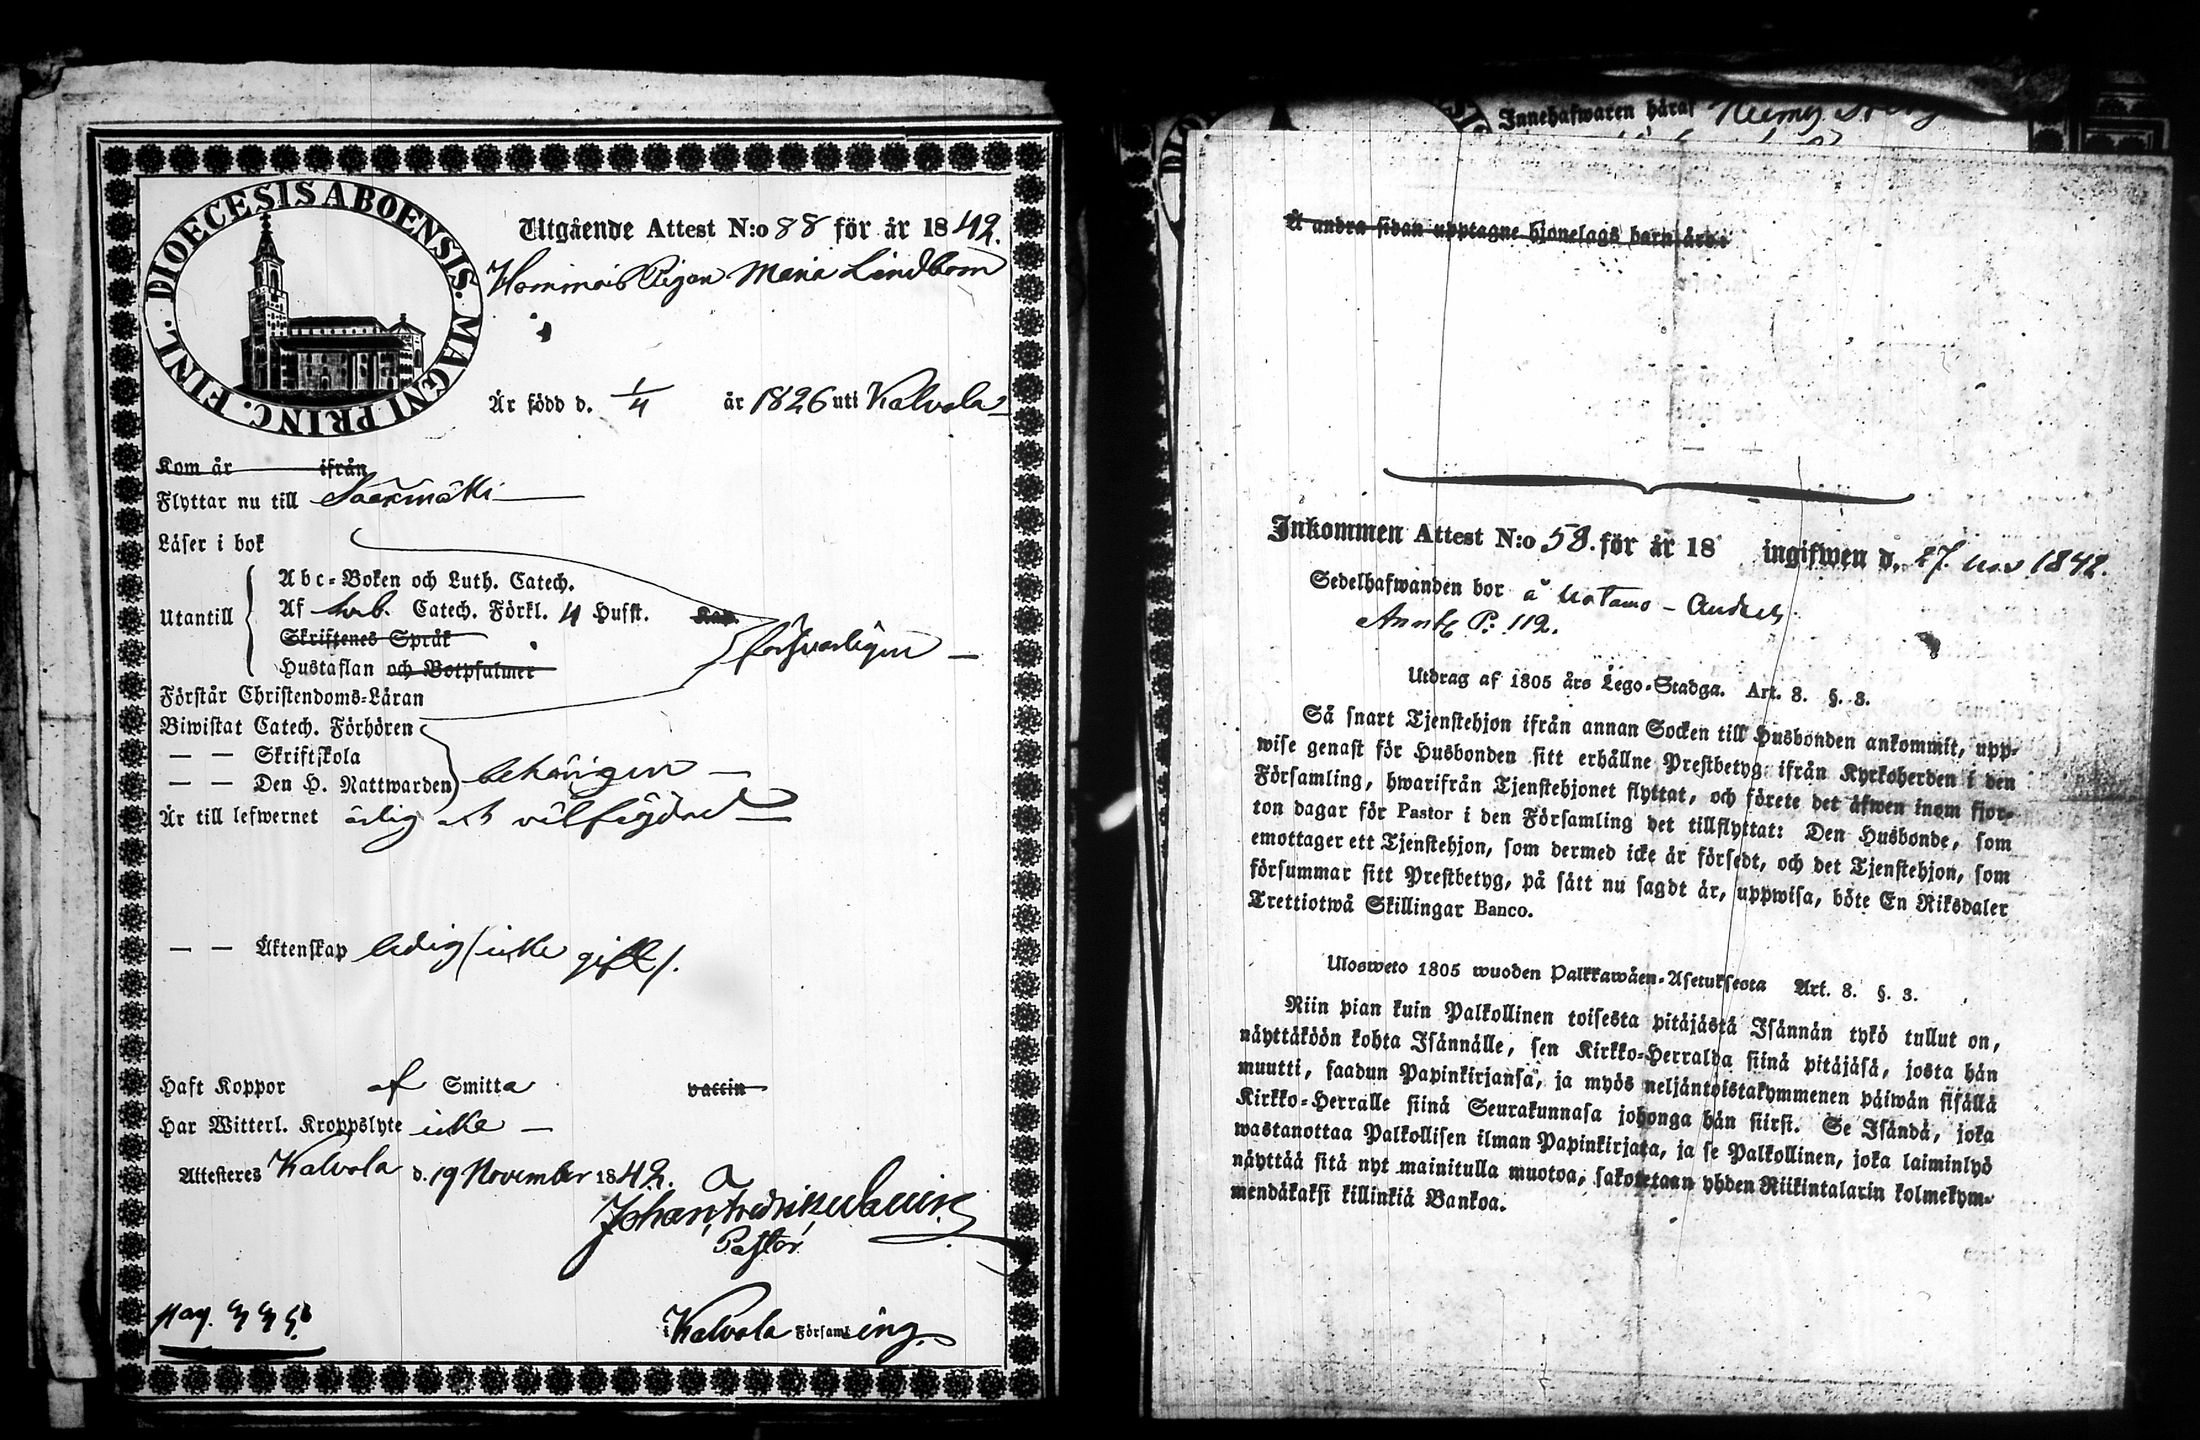 DIOECESIS ABOENSIS. MAGNI PRINC. FINL.
Utgående Attest N:o 88 för år 1842.
Pigan Maria Lindbom
Är född d. 1/4 år 1826 uti Kalvola
Kom år ifrån
Flyttar nu till Sääxmäki
Läser i bok
Utantill
Abc-Boken och Luth. Catech.
Af Catech. Förkl. 4 Husst. Kap.
Skriftenes Språk
Hustaflan och Botpsalmer
försvarligen
Förstår Christendoms-Läran
Biwistat Catech. Förhören
— — Skriftskola
— — Den H. Nattwarden
behörigen
Är till lefwernet ärlig och välfrägdad
— — Äktenskap ledig (icke gift).
Haft Koppor af Smitta vaccin
Har Witterl. Kroppslyte icke
Attesteres Kalvola d. 19 November 1842.
Johan Fredrik
Pastor
i Kalvola Församl ing.
pag.
Innehafwaren häraf
Å andra sidan upptagne hjonelags barn äro:
Inkommen Attest N:o 58. för år 18 ingifwen d. 27. nov 1842.
Sedelhafwanden bor å Uotamo - Andrels
P: 112.
Utdrag af 1805 års Lego-Stadga. Art. 8. §. 3.
Så snart Tjenstehjon ifrån annan Socken till Husbonden ankommit, upp-
wise genast för Husbonden sitt erhållne Prestbetyg ifrån Kyrkoherden i den
Församling, hwarifrån Tjenstehjonet flyttat, och förete det äfwen inom fjor-
ton dagar för Pastor i den Församling det tillflyttat: Den Husbonde, som
emottager ett Tjenstehjon, som dermed icke är försedt, och det Tjenstehjon, som
försummar sitt Prestbetyg, på sätt nu sagdt är, uppwisa, böte En Riksdaler
Trettiotwå Skillingar Banco.
Ulosweto 1805 wuoden Palkkawäen-Asetuksesta Art. 8. §. 3.
Niin pian kuin Palkollinen toisesta pitäjästä Isännän tykö tullut on,
näyttäköön kohta Isännälle, sen Kirkko-Herralda siinä pitäjäsä, josta hän
muutti, saadun Papinkirjansa, ja myös neljäntoistakymmenen päiwän sisällä
Kirkko-Herralle siinä Seurakunnasa johonga hän siirsi. Se Isändä, joka
wastanottaa Palkollisen ilman Papinkirjata, ja se Palkollinen, joka laiminlyö
näyttää sitä nyt mainitulla muotoa, sakotetaan yhden Riikintalarin kolmekym-
mendäkaksi killinkiä Bankoa.